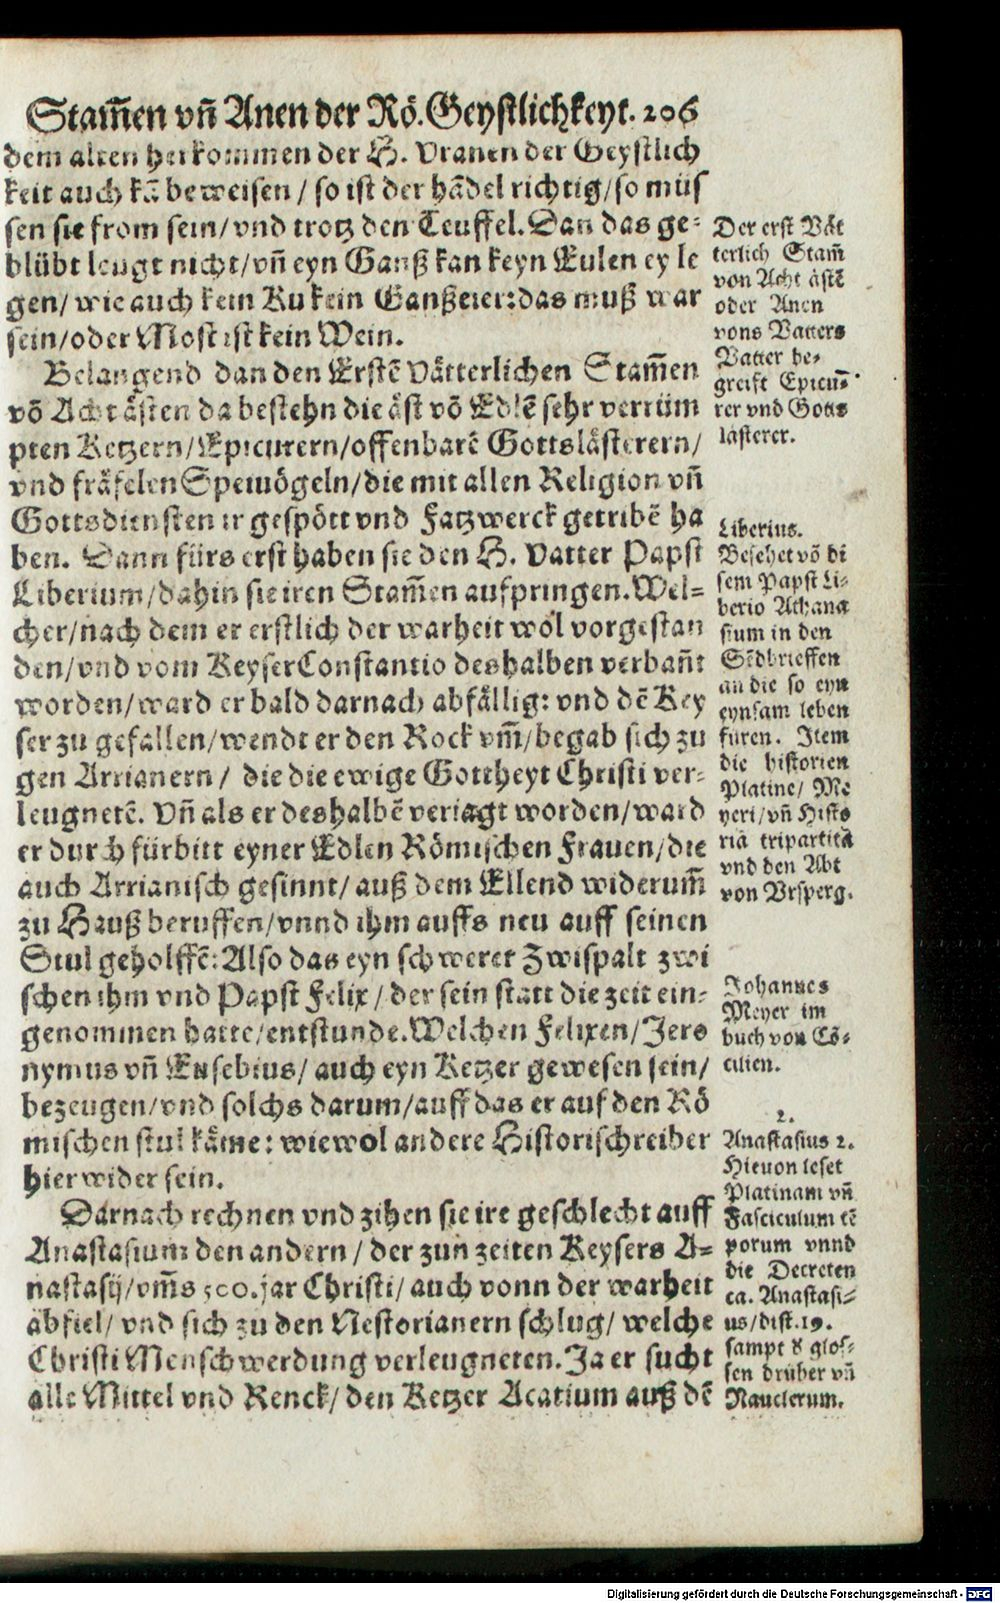 Stam̃en vñ Anen der Rö. Geystlichkeyt. 206
dem alten herkommen der H. Vranen der Geystlich
keit auch kã beweisen / so ist der hãdel richtig/so müs
sen sie from sein/vnd trotz den Teuffel. Dan das ge-
blübt leugt nicht/vñ eyn Ganß kan keyn Eulen ey le
gen/ wie auch kein Ku kein Ganßeier: das muß war
sein/oder Most ist kein Wein.
Belangend dan den Erstẽ Vätterlichen Stam̃en
võ Acht ästen da bestehn die äst võ Edlẽ sehr verrüm
pten Ketzern/Epicurern/offenbarẽ Gottslästerern/
vnd fräfelen Speiuögeln/die mit allen Religion vñ
Gottsdiensten ir gespött vnd Fatzwerck getribẽ ha
ben. Dann fürs erst haben sie den H. Vatter Papst
Liberium/dahin sie iren Stam̃en aufpringen. Wel-
cher/nach dem er erstlich der warheit wol vorgestan
den/vnd vom Keyser Constantio deshalben verbañt
worden/ward er bald darnach abfällig: vnd dẽ Key
ser zu gefallen/wendt er den Rock vm̃/begab sich zu
gen Arrianern/ die die ewige Gottheyt Christi ver-
leugnetẽ. Vñ als er deshalbẽ veriagt worden/ward
er durch fürbitt eyner Edlen Römischen Frauen/die
auch Arrianisch gesinnt/ auß dem Ellend widerum̃
zu Hauß beruffen/vnnd ihm auffs neu auff seinen
Stul geholffẽ: Also das eyn schwerer Zwispalt zwi
schen ihm vnd Papst Felix/ der sein statt die zeit ein-
genommen hatte/entstunde. Welchen Felixen/Jero
nymus vñ Eusebius/ auch eyn Ketzer gewesen sein/
bezeugen/vnd solchs darum/auff das er auf den Rö
mischen stul käme: wiewol andere Historischreiber
hierwider sein.
Darnach rechnen vnd zihen sie ire geschlecht auff
Anastasium den andern/ der zun zeiten Keysers A-
nastasij/vm̃s 500. jar Christi/ auch vonn der warheit
abfiel/ vnd sich zu den Nestorianern schlug/ welche
Christi Menschwerdung verleugneten. Ja er sucht
alle Mittel vnd Renck/ den Ketzer Acatium auß dẽ
Der erst Vät
terlich Stam̃
von Acht ästẽ
oder Anen
vons Vatters
Vatter be-
greift Epicu-
rer vnd Gotts
lästerer.
Liberius.
Besehet võ di
sem Papst Li-
berio Athana
sium in den
Sẽdbrieffen
an die so eyn
eynsam leben
füren. Item
die historien
Platine/ Me
yeri/vñ Histo
riã tripartitã
vnd den Abt
von Vrsperg.
Johannes
Meyer im
buch von Cõ-
cilien.
2.
Anastasius 2.
Hieuon leset
Platinam vñ
Fasciculum tẽ
porum vnnd
die Decreten
ca. Anastasi-
us/dist.19.
sampt d̕ glos-
sen drüber vñ
Nauclerum.
Digitalisierung gefördert durch die Deutsche Forschungsgemeinschaft - DFG